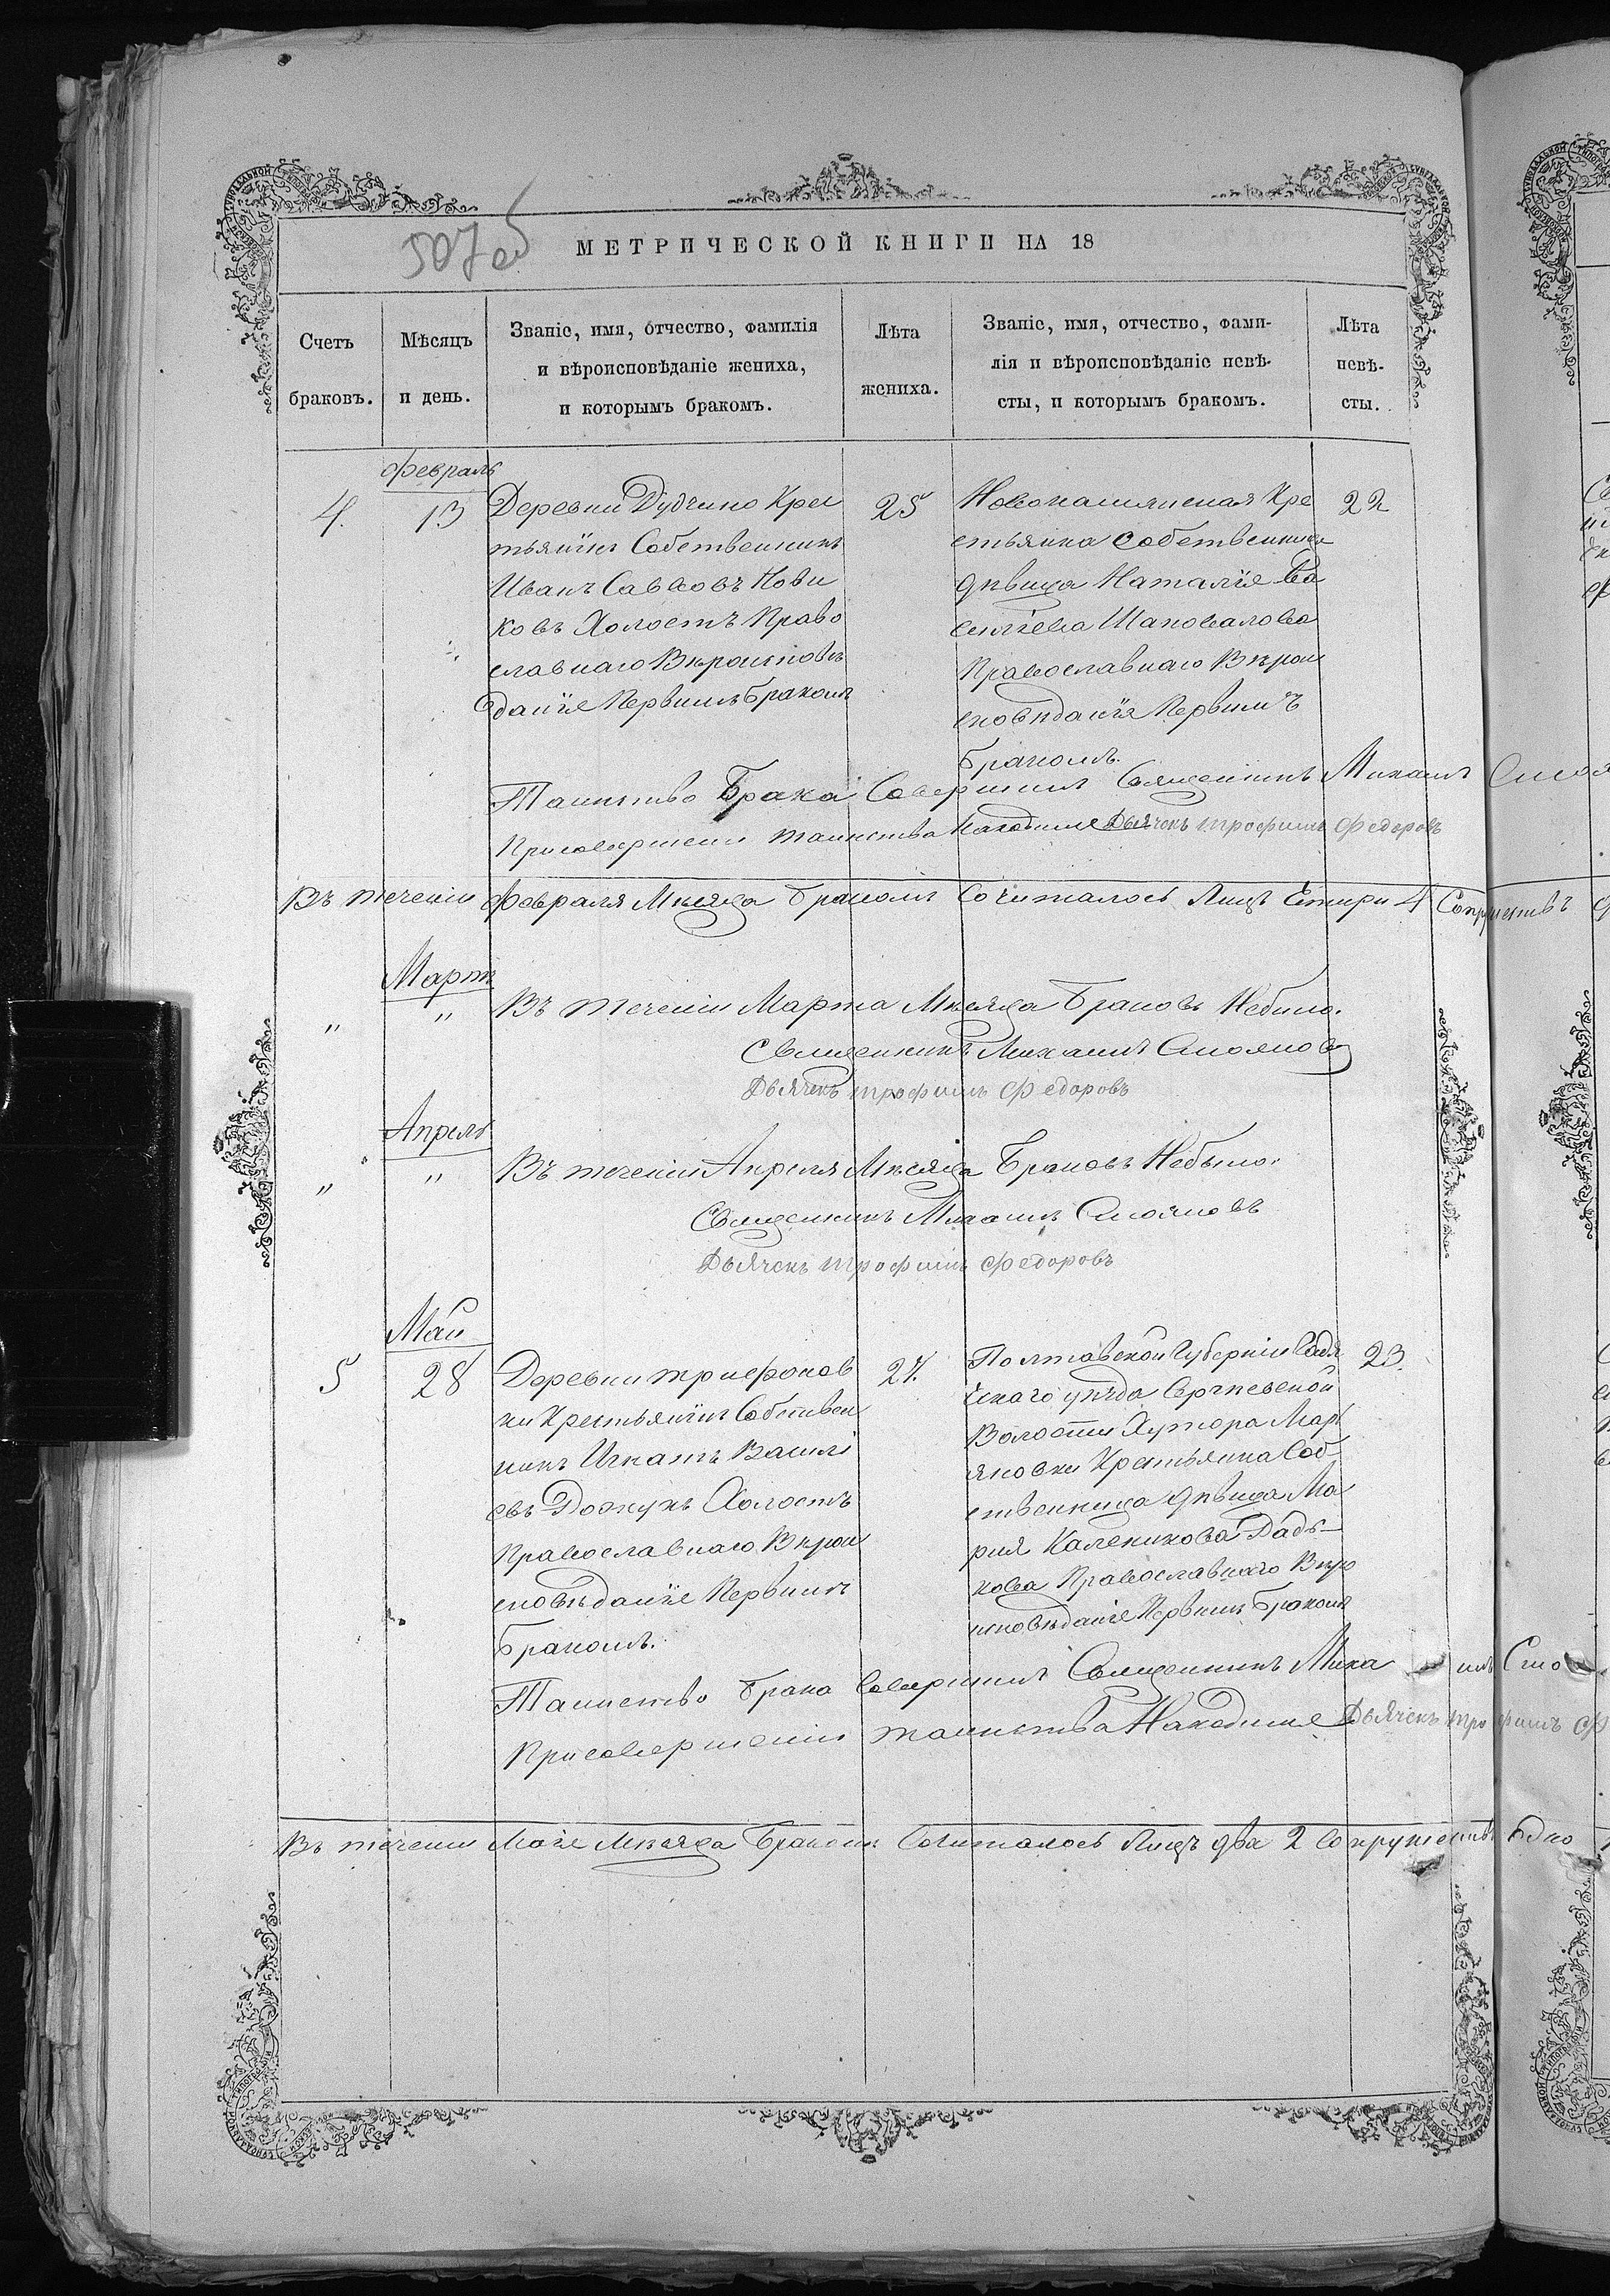 507 об
МЕТРИЧЕСКОЙ КНИГИ НА 18
Счетъ браковъ.
Мѣсяцъ и день.
Званіе, имя, отчество, фамилія
и вѣроисповѣданіе жениха,
и которымъ бракомъ.
Лѣта жениха.
Званіе, имя, отчество, фами-
лія и вѣроисповѣданіе невѣ-
сты, и которымъ бракомъ.
Лѣта невѣ-
сты.
Февраль
4. 13
Деревни Дудчино Крес
тьянинъ Собственникъ
Иванъ Саввовъ Нови
ковъ Холостъ Право
славнаго Вѣроисповѣ
даніе Первимъ бракомъ
25
Новокамянская Кре
стьянка Собственница
дѣвица Наталіе Ва
силіева Шаповалова
Православнаго Вѣрои
сповѣданія Первимъ
бракомъ.
22
Таинство Брака Совершилъ Священикъ Михаилъ
Присовершени таинства Находился Дьячекъ трофимъ Федоровъ
Въ течении Февраля Мѣсяца бракомъ Сочиталось Лицъ Четири 4 Супружествъ
Мартъ
" "
Въ течении Марта Мѣсяца Браковъ Небило.
Священникъ Михаилъ Стояновъ
Дьячекъ трофимъ Федоровъ
Апрель
" "
Въ течении Апреля Мѣсяца Браковъ Небыло.
Священникъ Михаилъ Стояновъ
Дьячекъ трофимъ Федоровъ
Май
5 28
Деревни трифонов
ки Крестьянинъ Собствен
никъ Игнатъ Васили
евъ Должукъ Холостъ
Православнаго Вѣрои
сповѣданіе Первимъ
бракомъ.
27.
Полтавской Губерніи Гадя
чскаго уѣзда Сергиевской
Волости Хутора Мар
яновки Крестьянка Соб
ственница дѣвица Ма
рия Каленикова Дядь-
кова Православнаго Вѣро
исповѣданіе Первим Бракомъ
23.
Таинство Брака Совершилъ Священникъ Миха илъ Сто
Присовершении таинства Находился Дьячекъ трофимъ Ф
Въ течении Маіе Мѣсяца Бракомъ Сочиталось Лицъ два 2 Супружествъ одно